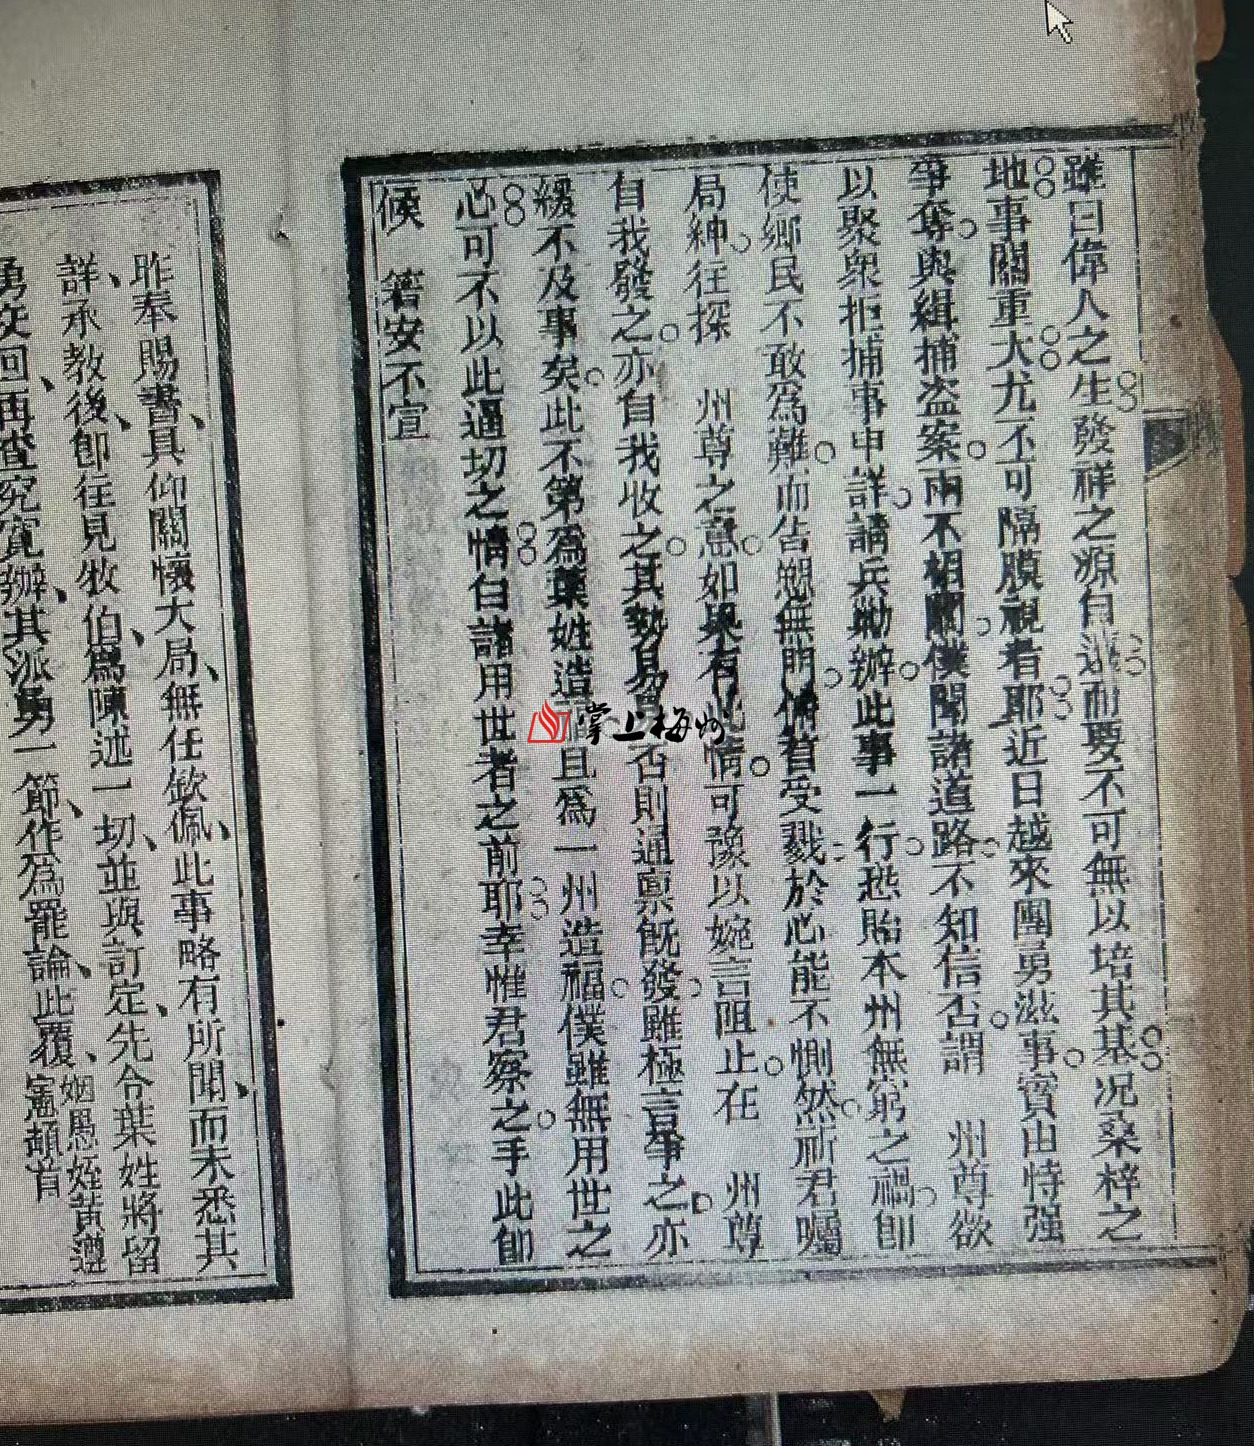 雖曰偉人之生發祥之源自遠而要不可無以培其基况桑梓之
地事關重大尤不可隔膜視者耶近日越來團勇滋事實由恃强
爭奪與緝捕盗案兩不相關僕聞諸道路不知信否謂 州尊欲
以聚衆拒捕事申詳請兵勦辦此事一行恐貽本州無窮之禍卽
使鄉民不敢爲難而告愬無門備首受戮於心能不惻然祈君囑
局紳往探 州尊之意如果有此情可豫以婉言阻止在 州尊
自我發之亦自我收之其勢易 否則通禀旣發雖極言爭之亦
緩不及事矣此不第爲葉姓造 且爲一州造福僕雖無用世之
心可不以此逼切之情白諸用世者之前耶幸惟君察之手此卽
候 箸安不宣
昨奉賜書具仰關懷大局無任欽佩此事略有所聞而未悉其
詳承教後卽往見牧伯爲陳述一切並與訂定先令葉姓將留
勇交回再查究寬辦其派勇一節作爲罷論此覆 姻愚姪黃遵
憲頓首
掌上梅州